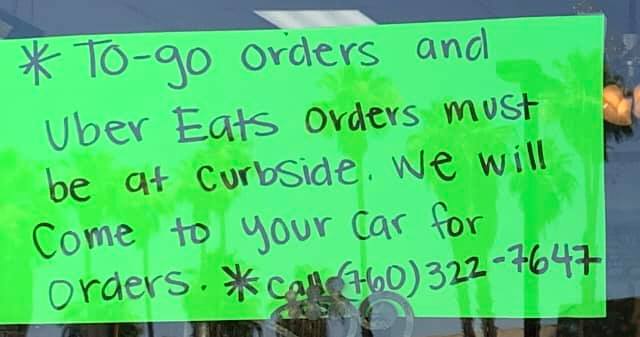 * To-go orders and
Uber Eats orders must
be at curbside. We will
Come to your car for
orders. * Call (760) 322-7647